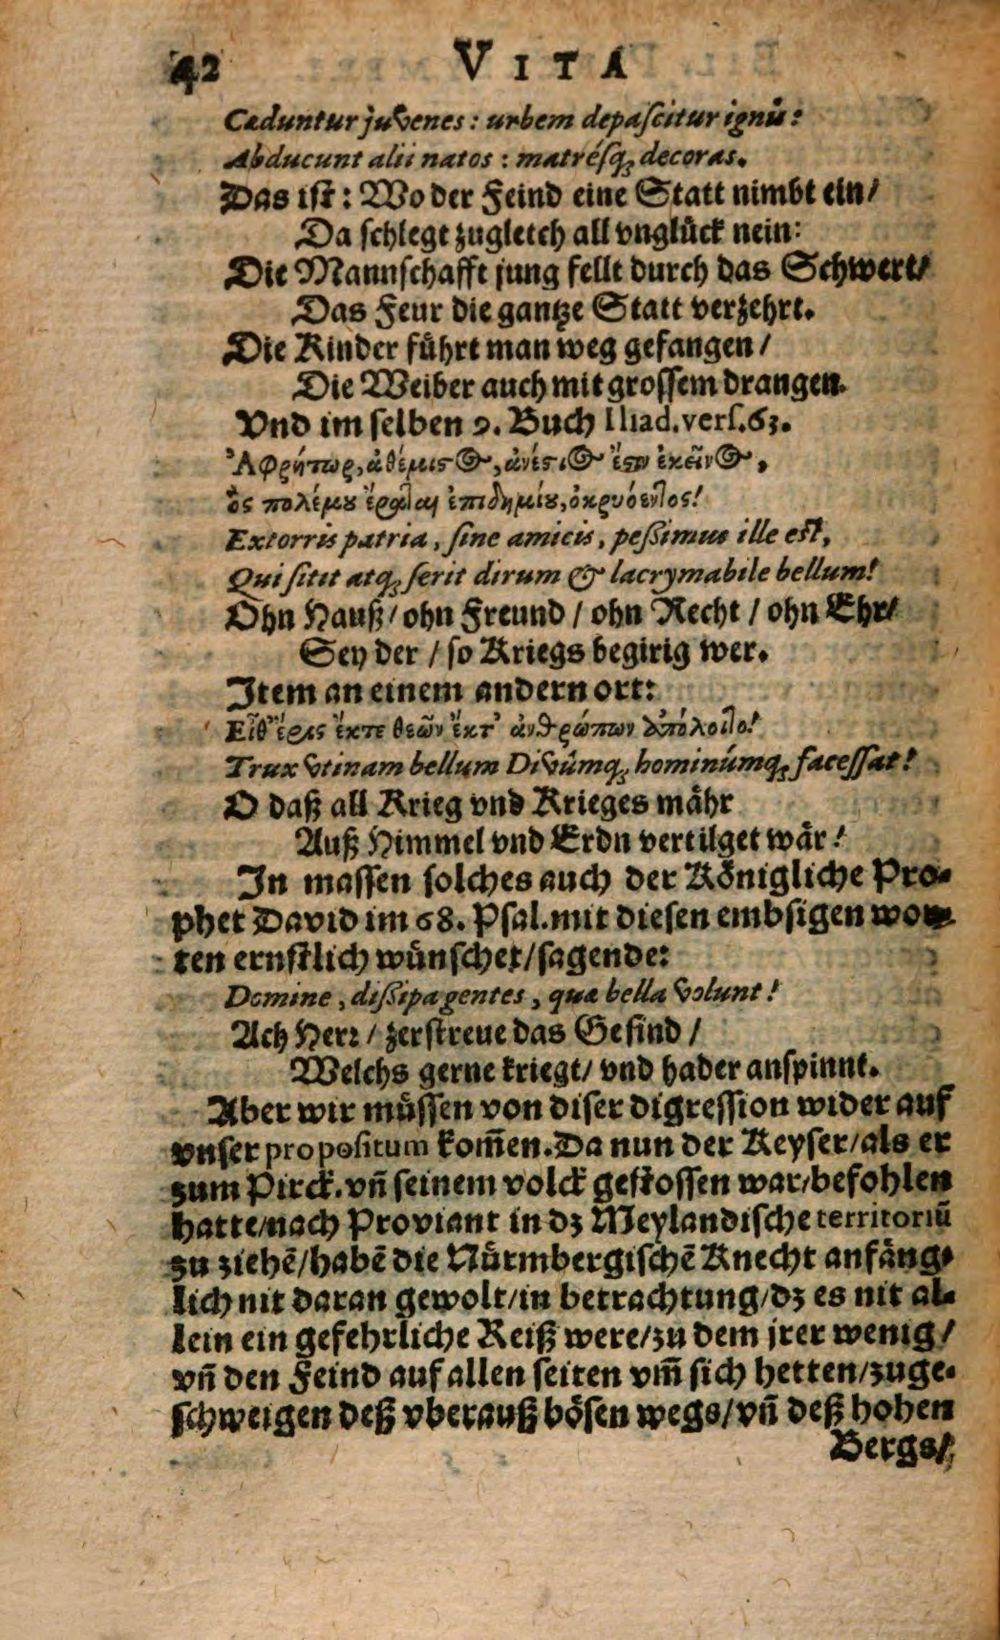 42 VITA
Cæduntur juvenes: urbem depascitur ignis:
Abducunt alii natos: matrésq; decoras.
Das ist: Wo der Feind eine Statt nimbt ein/
Da schlegt zugleich all vnglück nein:
Die Mannschafft jung fellt durch das Schwert/
Das Feur die gantze Statt verzehrt.
Die Kinder führt man weg gefangen/
Die Weiber auch mit grossem drangen.
Vnd im selben 9. Buch Iliad. vers. 63.
Ἀφρήτωρ, ἀθέμιστος, ἀνέστιός ἔστιν ἐκεῖνος,
ὃς πολέμου ἔραται ἐπιδημίου, ὀκρυόεντος!
Extorris patria, sine amicis, pessimus ille est,
Qui sitit atq; serit dirum & lacrymabile bellum!
Ohn Hauß/ ohn Freund/ ohn Recht/ ohn Ehr/
Sey der/ so Kriegs begirig wer.
Item an einem andern ort:
Εἴθ' ἔρις ἔκ τε θεῶν ἔκ τ' ἀνθρώπων ἀπόλοιτο!
Trux vtinam bellum Divûmq; hominúmq; facessat!
O daß all Krieg vnd Krieges mähr
Auß Himmel vnd Erdn vertilget wär!
In massen solches auch der Königliche Pro-
phet David im 68. Psal. mit diesen embsigen wor-
ten ernstlich wünschet/ sagende:
Domine, dissipa gentes, quæ bella volunt!
Ach Herr/ zerstreue das Gesind/
Welchs gerne kriegt/ vnd hader anspinnt.
Aber wir müssen von diser digression wider auf
vnser propositum kom̃en. Da nun der Keyser/ als er
zum Pirck. vñ seinem volck gestossen war/ befohlen
hatte/ nach Proviant in dz Meylandische territoriũ
zu ziehẽ/ habẽ die Nürmbergischẽ Knecht anfäng-
lich nit daran gewolt/ in betrachtung/ dz es nit al-
lein ein gefehrliche Reiß were/ zu dem jrer wenig/
vñ den Feind auf allen seiten vm̃ sich hetten/ zuge-
schweigen deß vberauß bösen wegs/ vñ deß hohen
Bergs/